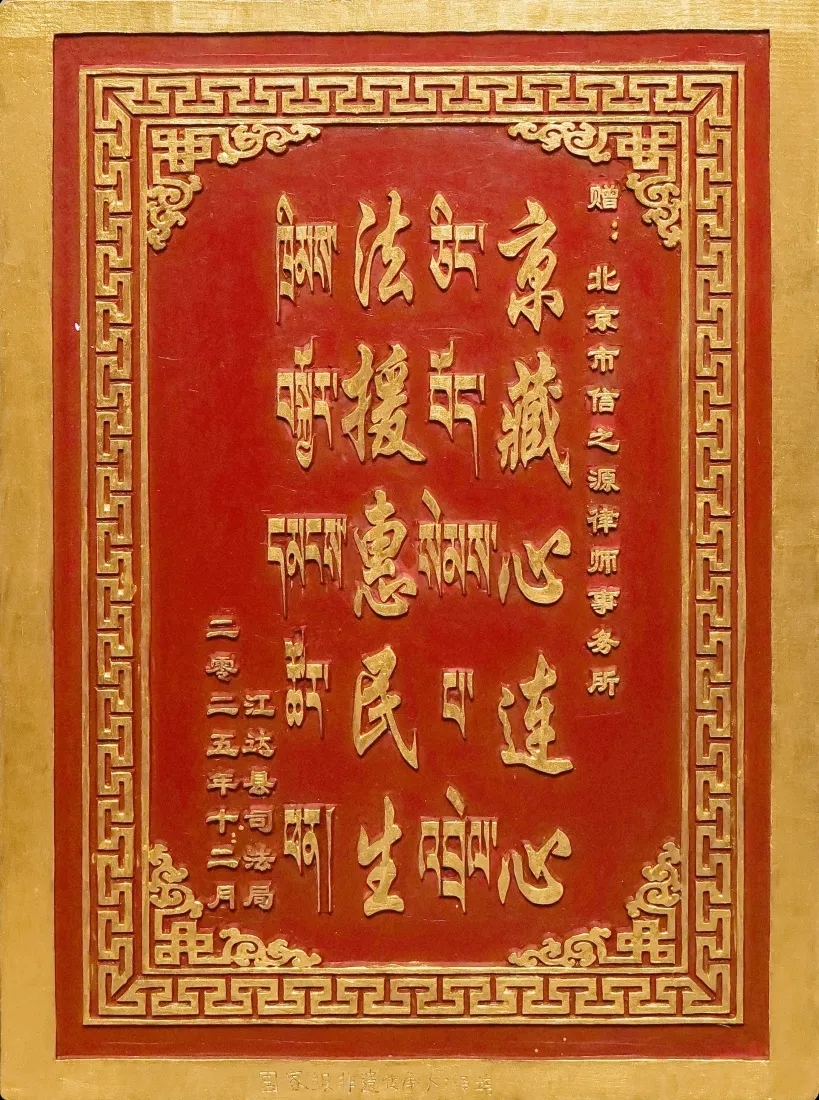 赠：北京市信之源律师事务所
京藏心连心
ཅིང་བོད་སེམས་པ་འབྲེལ་
法援惠民生
ཁྲིམས་ དམངས་ཚོར་ཕན།
江达县司法局
二零二五年十二月
国家级非遗传承人